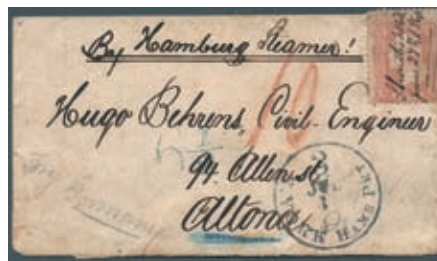 By Hamburg Steamer!
10
Hugo Behrens, Civil-Engineer
94. Allen st
Altona
Germany
N. YORK HAMB. PKT